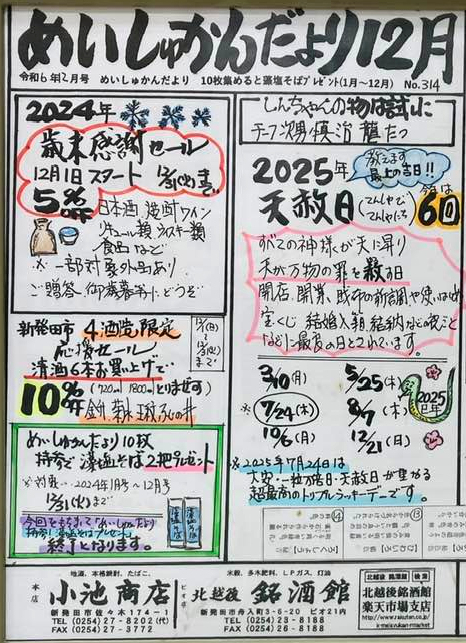 めいしゅかんだより12月
令和6年12月号 めいしゅかんだより 10枚集めると藻塩そばプレゼント(1月～12月) No.314
2024年
歳末感謝セール
12月1日スタート 12/31(火)まで
5%OFF 日本酒 焼酎 ワイン
リキュール類 ウイスキー類
食品など
※一部対象外品あり
ご贈答、御歳暮等にどうぞ
新発田市 4酒造限定
応援セール
清酒6本お買上げで
10%OFF (720ml 1800mlとりまぜ可)
めいしゅかんだより10枚
持参で 藻塩そば2把プレゼント
※対象…2024年1月号～12月号
12/31(火)まで
今回をもちまして「めいしゅかんだより
持参!藻塩そばプレゼント」
終了となります。
しんちゃんの物は試しに
教えます 最上の吉日!!
2025年 今年は
天赦日 6回
すべての神様が天に昇り
天が万物の罪を赦す日
開店、開業、財布の新調や使いはじめ
宝くじ 結婚入籍、結納などの慶ごと
などに最良の日とされています。
3/10(月) 5/25(木)
※7/24(木) 8/7(木)
10/6(月) 12/21(日)
2025 巳年
※2025年7月24日は
大安・一粒万倍日・天赦日が重なる
超最高のトリプルラッキーデーです。
⑭ ⑬
地酒、本格焼酎、たばこ、
本店 小池商店
新発田市佐々木174－1
TEL (0254)27-8202(代)
FAX (0254)27-3772
米穀、多木肥料、LPガス、灯油
ピオ店 北越後 銘酒館
新発田市舟入町3-6-20 ピオ21内
TEL (0254)23-8188
FAX (0254)26-8188
北越後 銘酒館 検索
北越後銘酒館
楽天市場支店